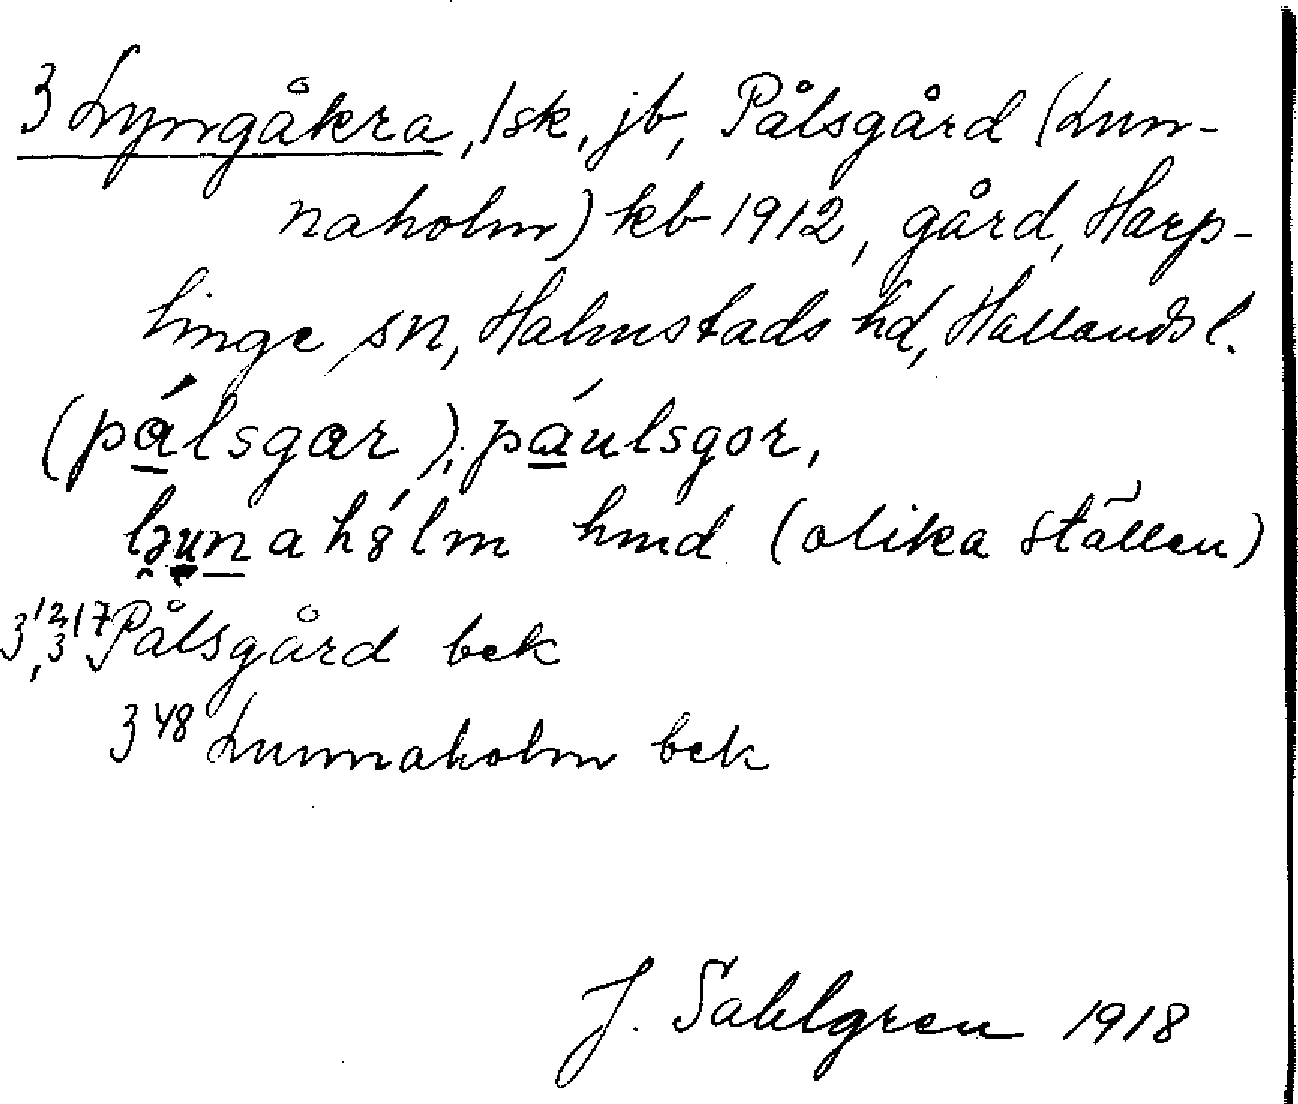 3 Lyngåkra, /sk, jb, Pålsgård (Lun-
naholm) kb 1912, gård, Harp-
linge sn, Halmstads hd, Hallands l.
(pálsgar); páulsgor,
hmd (olika ställen)
3¹², 3¹⁷ Pålsgård bek
3⁴⁸ Lunnaholm bek
J. Sahlgren 1918